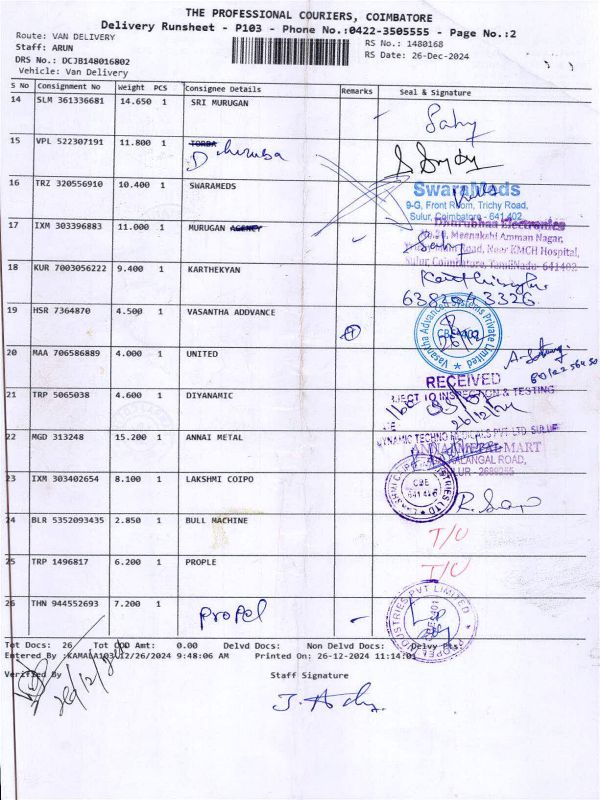 THE PROFESSIONAL COURIERS, COIMBATORE
Delivery Runsheet - P103 - Phone No.:0422-3505555 - Page No.:2
Route: VAN DELIVERY
Staff: ARUN
RS No.: 1480168
DRS No.: DCJB148016802
RS Date: 26-Dec-2024
Vehicle: Van Delivery
S No Consignment No Weight PCS Consignee Details Remarks Seal & Signature
14 SLM 361336681 14.650 1 SRI MURUGAN
15 VPL 522307191 11.800 1 TORBA
16 TRZ 320556910 10.400 1 SWARAMEDS
SwaraMeds
9-G, Front Room, Trichy Road,
Sulur, Coimbatore - 641 402
17 IXM 303396883 11.000 1 MURUGAN AGENCY
Dhurubhaa Electronics
Meenakshi Amman Nagar,
Road, Near KMCH Hospital,
Sulur, Coimbatore, TamilNadu- 641402
18 KUR 7003056222 9.400 1 KARTHEKYAN
6382043326
19 HSR 7364870 4.500 1 VASANTHA ADDVANCE
Vasantha Advanced Systems Private Limited
20 MAA 706586889 4.000 1 UNITED
RECEIVED
21 TRP 5065038 4.600 1 DIYANAMIC
SUBJECT TO INSPECTION & TESTING
26/12/24
DYNAMIC TECHNO MEDICALS PVT LTD SULUR
22 MGD 313248 15.200 1 ANNAI METAL
ANNAI METAL MART
KALANGAL ROAD,
SULUR
23 IXM 303402654 8.100 1 LAKSHMI COIPO
24 BLR 5352093435 2.850 1 BULL MACHINE T/U
25 TRP 1496817 6.200 1 PROPLE T/U
26 THN 944552693 7.200 1 propel
PROPEL INDUSTRIES PVT LIMITED
Tot Docs: 26 Tot COD Amt: 0.00 Delvd Docs: Non Delvd Docs: Delvy Pts:
Entered By :KAMALA103\12/26/2024 9:48:06 AM Printed On: 26-12-2024 11:14:01
Verified By Staff Signature
26/12/24